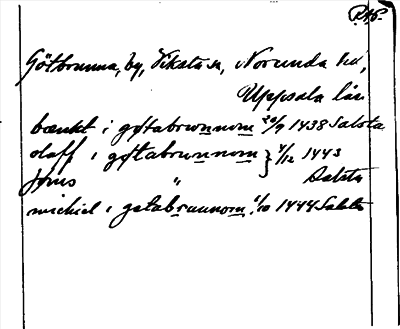 RAP.
Götbrunna, by, Viksta sn, Norunda hd,
Uppsala län
bænkt i gøtabrunnom 20/9 1438 Salsta
olaff i gøtabrunnom } 4/12 1443
Jøns " Salsta
michiel i gatabrunnom 1/10 1444 Salsta